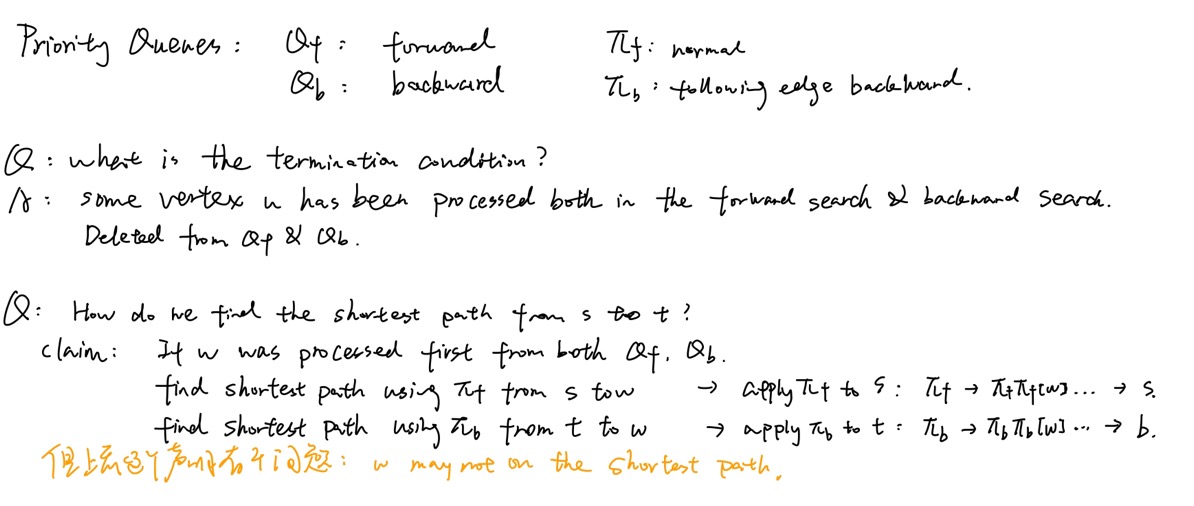 Priority Queues : Qf : forward πf : normal
Qb : backward πb : following edge backward.
Q : what is the termination condition ?
A : some vertex u has been processed both in the forward search & backward search.
Deleted from Qf & Qb.
Q : How do we find the shortest path from s to t ?
claim : If w was processed first from both Qf, Qb.
find shortest path using πf from s to w → apply πf to s : πf → πf πf[w] ... → s.
find shortest path using πb from t to w → apply πb to t : πb → πb πb[w] ... → b.
但上面这个声明有个问题 : w may not on the shortest path.